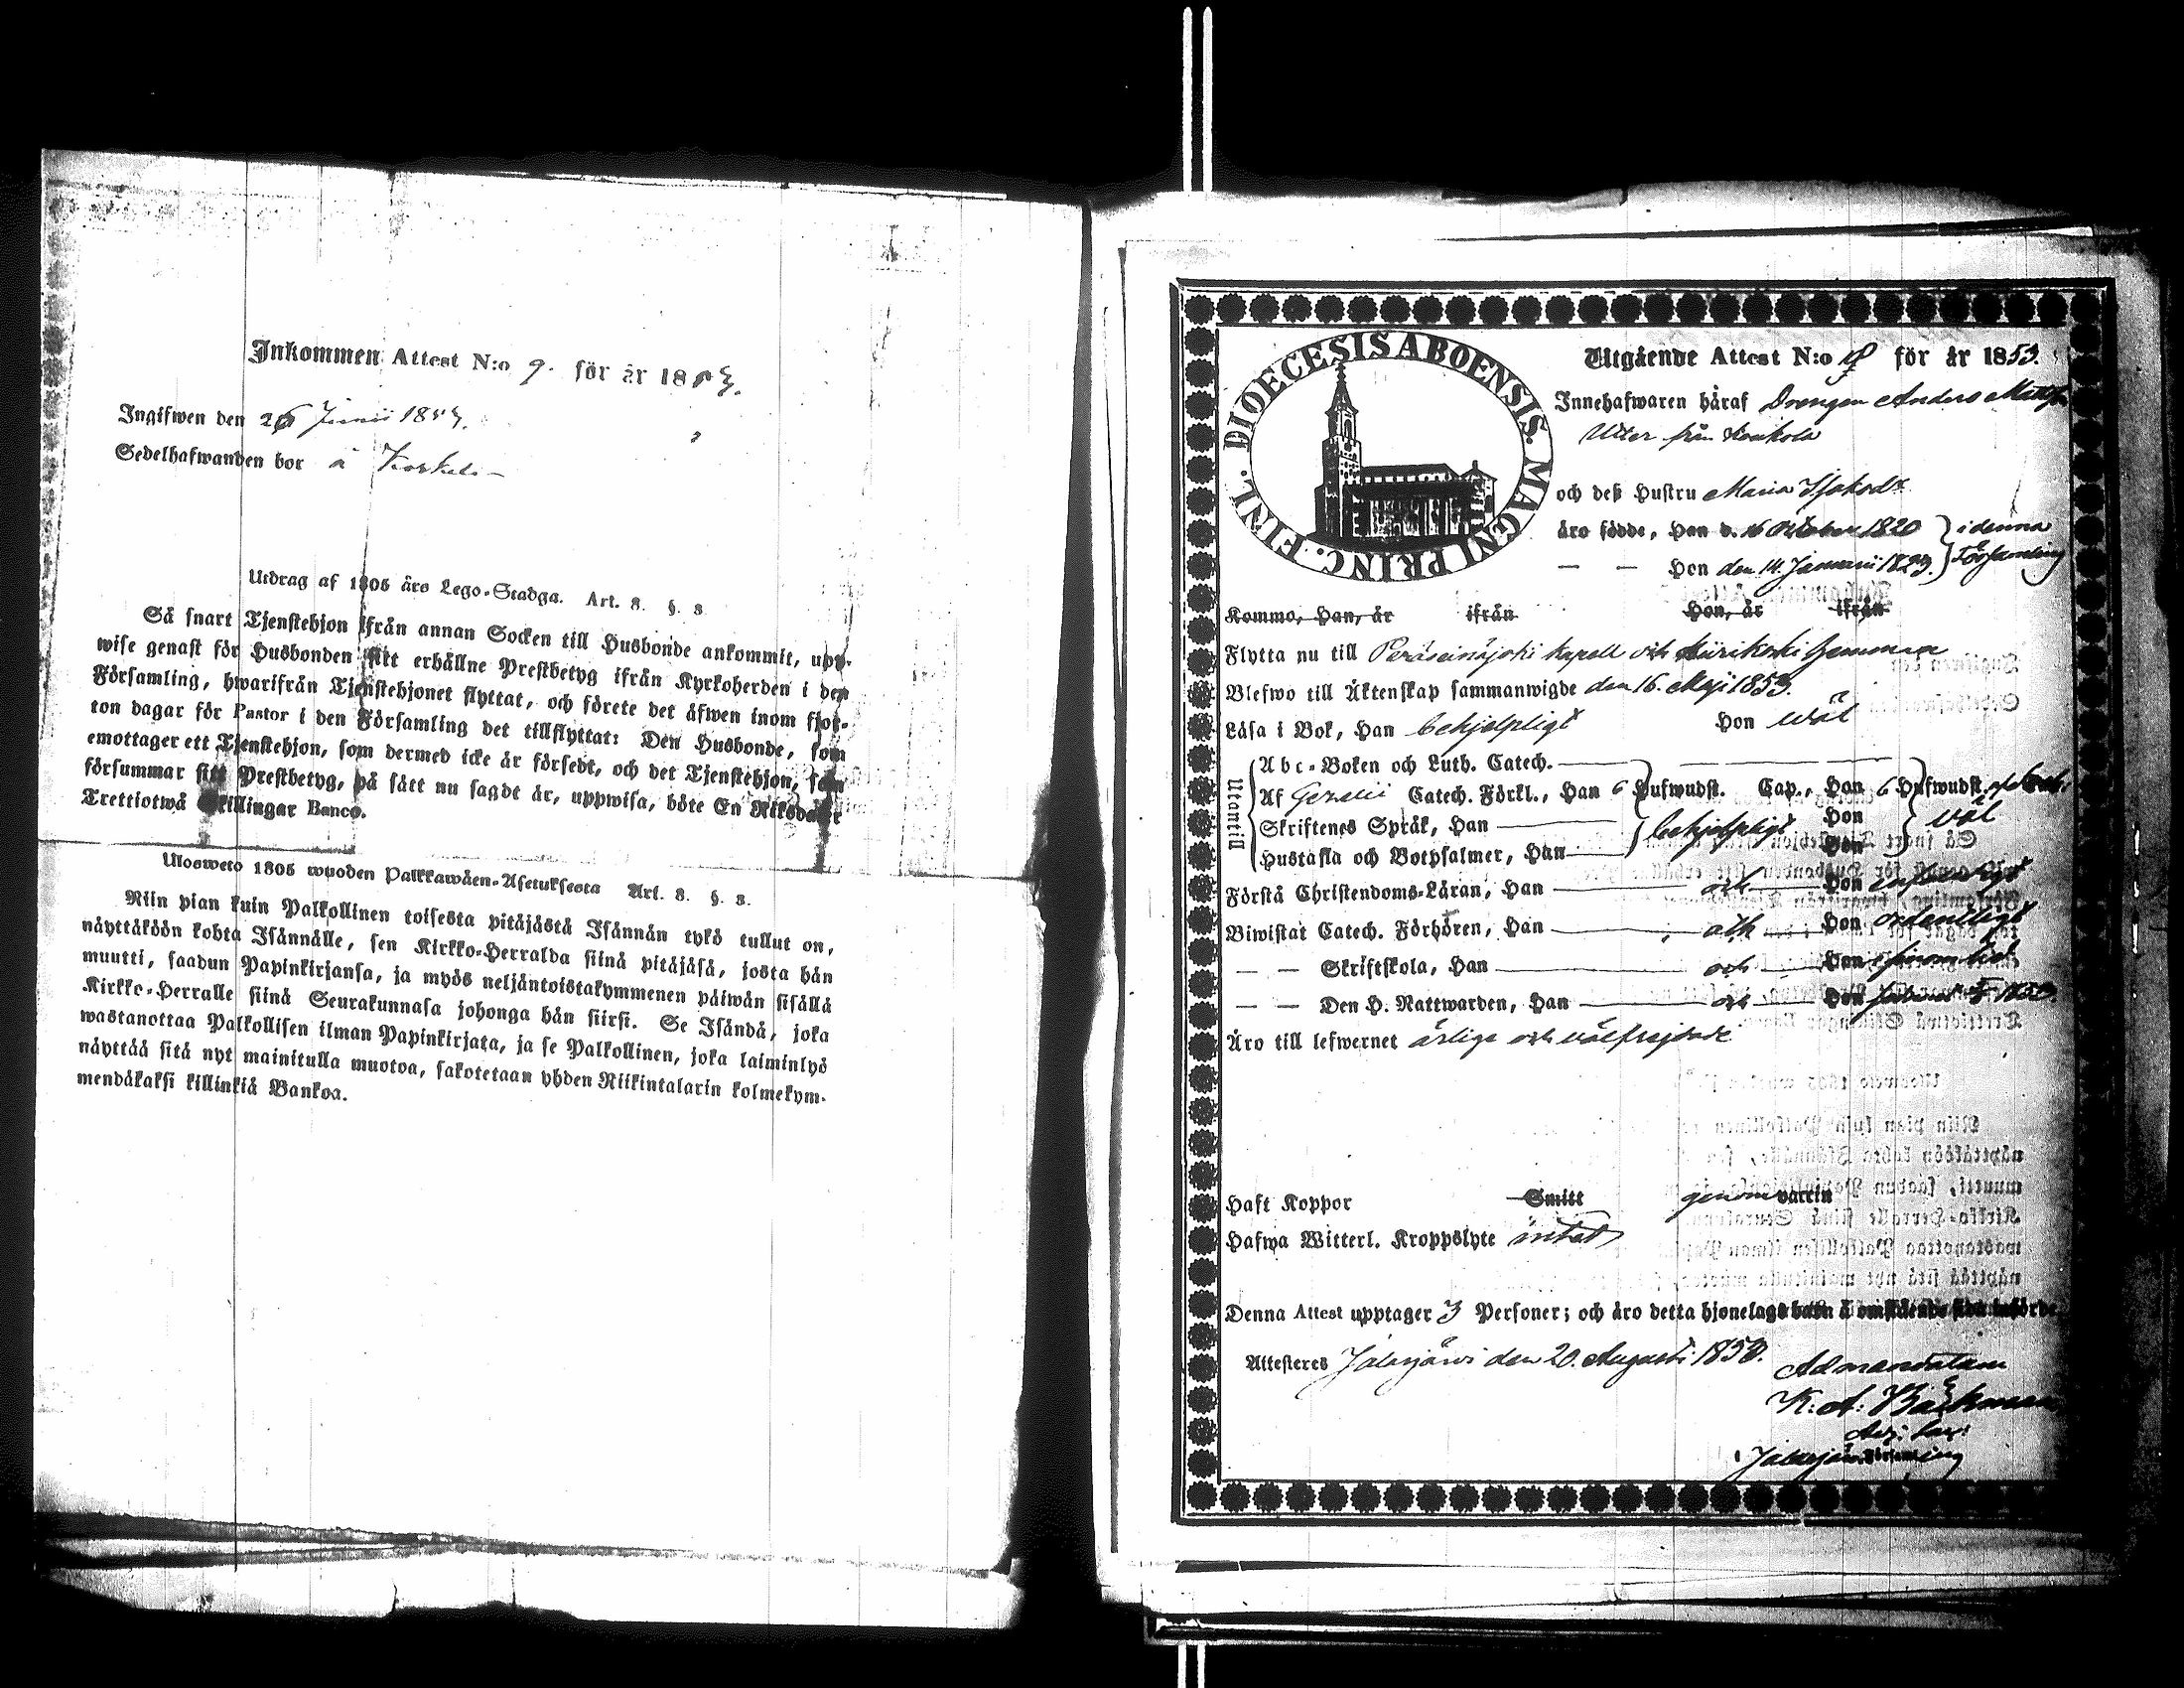 Inkommen Attest N:o 9. för år 1853.
Ingifwen den 26 Junii 1853.
Sedelhafwanden bor å
Utdrag af 1805 års Lego-Stadga. Art. 8. §. 3
Så snart Tjenstehjon ifrån annan Socken till Husbonde ankommit, upp-
wise genast för Husbonden sitt erhållne Prestbetyg ifrån Kyrkoherden i den
Församling, hwarifrån Tjenstehjonet flyttat, och förete det äfwen inom fjor-
ton dagar för Pastor i den Församling det tillflyttat: Den Husbonde, som
emottager ett Tjenstehjon, som dermed icke är försedt, och det Tjenstehjon, som
försummar sitt Prestbetyg, på sätt nu sagdt är, uppwisa, böte En Riksdaler
Trettiotwå Skillingar Banco.
Ulosweto 1805 wuoden Palkkawäen-Asetuksesta Art. 8. §. 3.
Niin pian kuin Palkollinen toisesta pitäjästä Isännän tykö tullut on,
näyttäköön kohta Isännälle, sen Kirkko-Herralda siinä pitäjäsä, josta hän
muutti, saadun Papinkirjansa, ja myös neljäntoistakymmenen päiwän sisällä
Kirkko-Herralle siinä Seurakunnasa johonga hän siirsi. Se Isändä, joka
wastanottaa Palkollisen ilman Papinkirjata, ja se Palkollinen, joka laiminlyö
näyttää sitä nyt mainitulla muotoa, sakotetaan yhden Riikintalarin kolmekym-
mendäkaksi killinkiä Bankoa.
DIOECESIS ABOENSIS. MAGNI PRINC. FINL.
Utgående Attest N:o för år 1853.
Innehafwaren häraf Drengen Anders Matts
från
och deß Hustru Maria
äro födde, Han d. 16 Oktober 1820 } i denna
— — Hon den 14. Januarii 1823. } Församling
Komme, Han, år ifrån Hon, år ifrån
Flytta nu till Peräseinäjoki kapell och
Blefwo till Äktenskap sammanwigde den 16. Maji 1853.
Läsa i Bok, Han behjelpligt Hon wäl
Utantill
Abc-Boken och Luth. Catech.
Af Gezelii Catech. Förkl., Han 6 Hufwudst. Cap., Hon 6 Hufwudst.
Skriftenes Språk, Han — behjelpligt Hon wäl
Hustafla och Botpsalmer, Han — Hon
Förstå Christendoms-Läran, Han — och — Hon
Biwistat Catech. Förhören, Han — och — Hon ordentligt
— — Skriftskola, Han — och — Hon
— — Den H. Nattwarden, Han — och — Hon
Äro till lefwernet ärliga och wälfrejdade
Haft Koppor Smitt genom vaccin
Hafwa Witterl. Kroppslyte intet
Denna Attest upptager 3 Personer; och äro detta hjonelags barn å omstående sida införde
Attesteras Jalasjärwi den 20. Augusti 1853.
Ad mandatum
K: A: Bäckman
i Jalasjärwi Församling